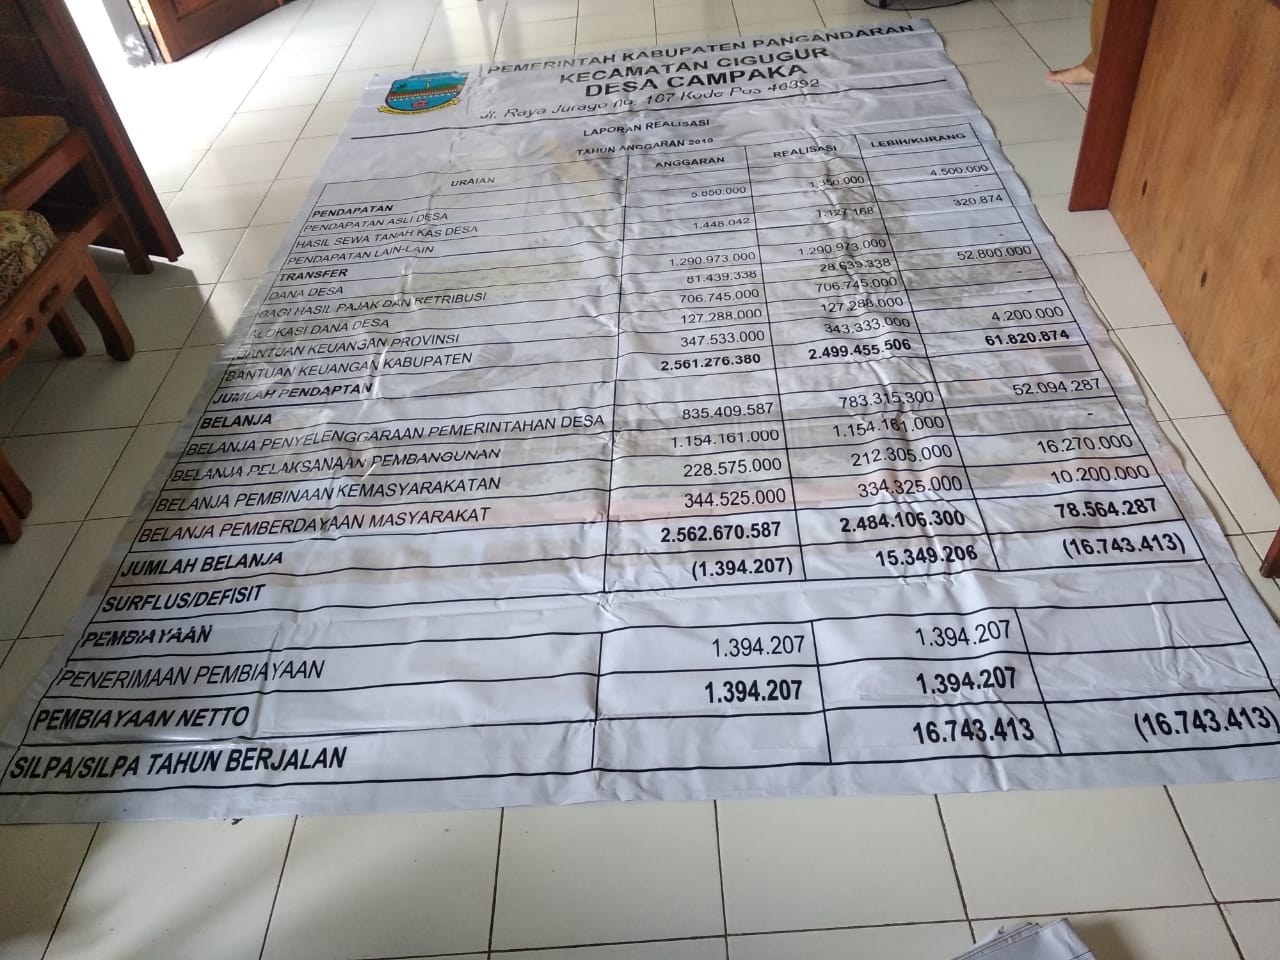 PEMERINTAH KABUPATEN PANGANDARAN
KECAMATAN CIGUGUR
DESA CAMPAKA
Jl. Raya Jurago no. 167 Kode Pos 46392
LAPORAN REALISASI
TAHUN ANGGARAN 2019
URAIAN ANGGARAN REALISASI LEBIH/KURANG
PENDAPATAN
PENDAPATAN ASLI DESA
HASIL SEWA TANAH KAS DESA 5.850.000 1.350.000 4.500.000
PENDAPATAN LAIN-LAIN 1.448.042 1.127.168 320.874
TRANSFER
DANA DESA 1.290.973.000 1.290.973.000
BAGI HASIL PAJAK DAN RETRIBUSI 81.439.338 28.639.338 52.800.000
ALOKASI DANA DESA 706.745.000 706.745.000
BANTUAN KEUANGAN PROVINSI 127.288.000 127.288.000
BANTUAN KEUANGAN KABUPATEN 347.533.000 343.333.000 4.200.000
JUMLAH PENDAPTAN 2.561.276.380 2.499.455.506 61.820.874
BELANJA
BELANJA PENYELENGGARAAN PEMERINTAHAN DESA 835.409.587 783.315.300 52.094.287
BELANJA PELAKSANAAN PEMBANGUNAN 1.154.161.000 1.154.161.000 -
BELANJA PEMBINAAN KEMASYARAKATAN 228.575.000 212.305.000 16.270.000
BELANJA PEMBERDAYAAN MASYARAKAT 344.525.000 334.325.000 10.200.000
JUMLAH BELANJA 2.562.670.587 2.484.106.300 78.564.287
SURFLUS/DEFISIT (1.394.207) 15.349.206 (16.743.413)
PEMBIAYAAN
PENERIMAAN PEMBIAYAAN 1.394.207 1.394.207
PEMBIAYAAN NETTO 1.394.207 1.394.207
SILPA/SILPA TAHUN BERJALAN 16.743.413 (16.743.413)